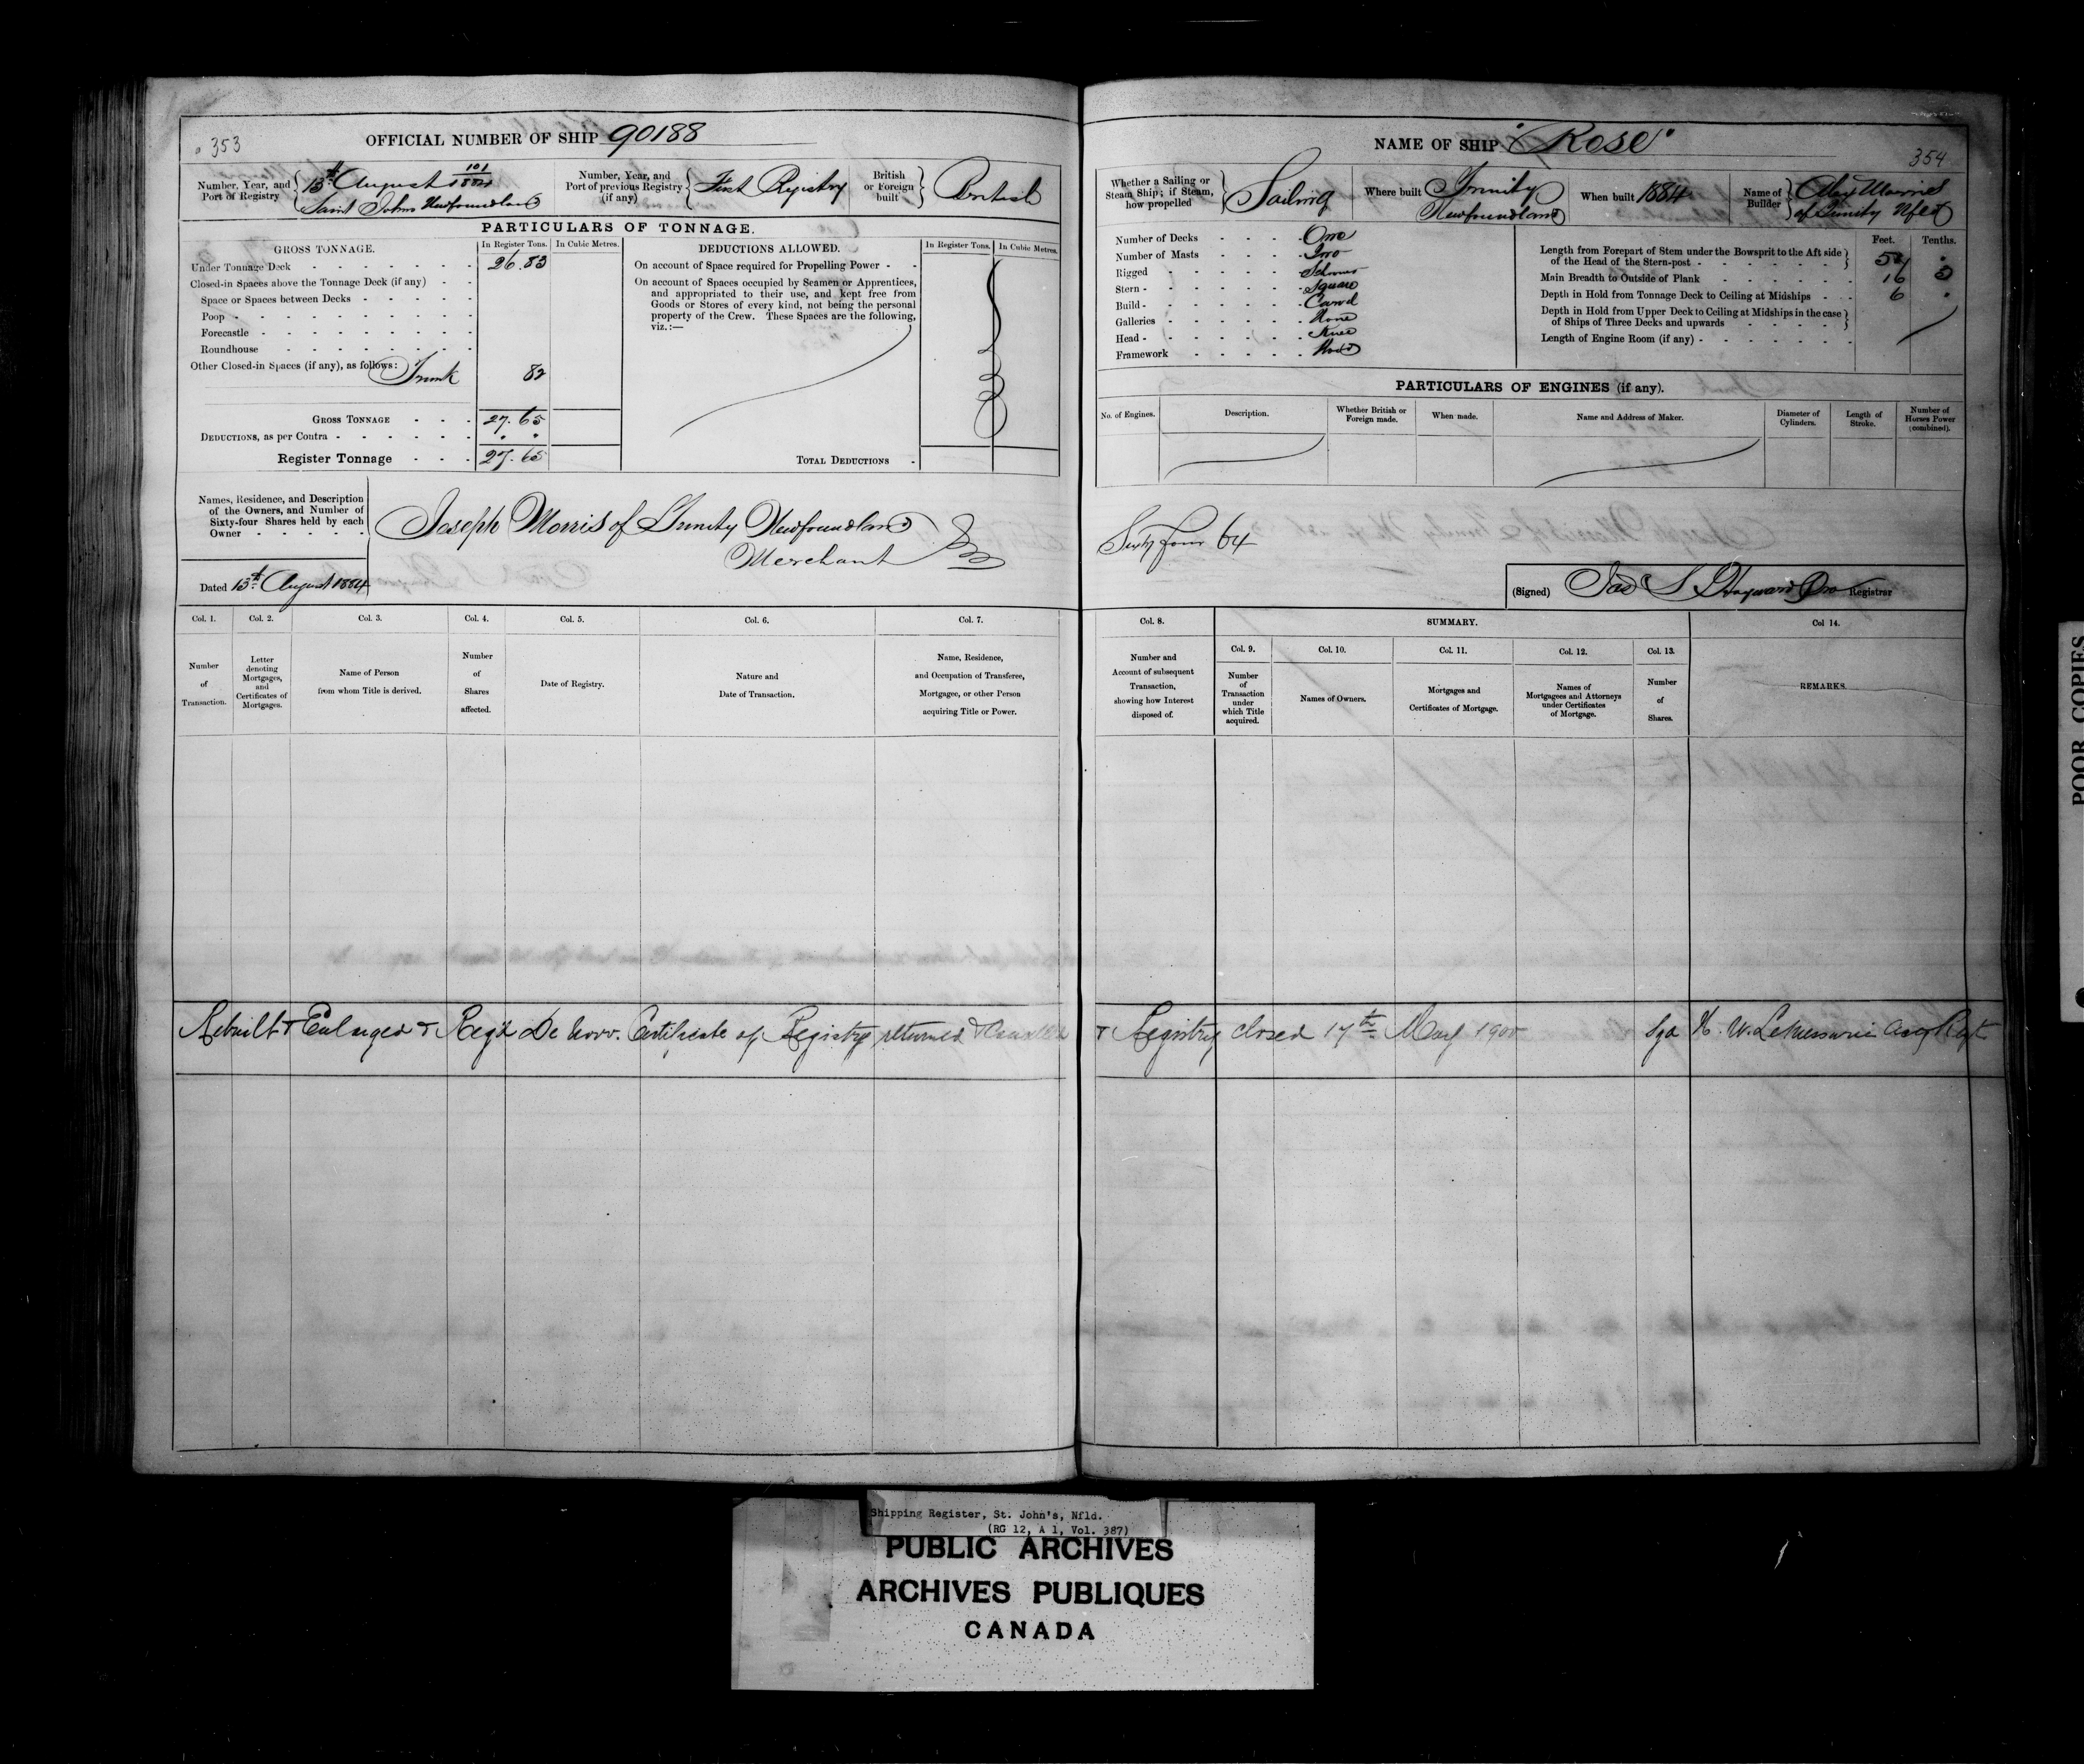 353
OFFICIAL NUMBER OF SHIP 90188
Number, Year, and Port of Registry
13th August 101/1884
Saint Johns Newfoundland
Number, Year, and Port of previous Registry (if any)
First Registry
British or Foreign built
British
PARTICULARS OF TONNAGE.
GROSS TONNAGE.
In Register Tons.
In Cubic Metres.
Under Tonnage Deck 26.83
Closed-in Spaces above the Tonnage Deck (if any)
Space or Spaces between Decks
Poop
Forecastle
Roundhouse
Other Closed-in Spaces (if any), as follows: Trunk 82
GROSS TONNAGE 27.65
DEDUCTIONS, as per Contra
Register Tonnage 27.65
DEDUCTIONS ALLOWED.
In Register Tons.
In Cubic Metres.
On account of Space required for Propelling Power
On account of Spaces occupied by Seamen or Apprentices,
and appropriated to their use, and kept free from
Goods or Stores of every kind, not being the personal
property of the Crew. These Spaces are the following,
viz.:—
TOTAL DEDUCTIONS
Names, Residence, and Description
of the Owners, and Number of
Sixty-four Shares held by each
Owner
Joseph Morris of Trinity Newfoundland
Merchant
Dated 13th August 1884
Col. 1.
Number of Transaction.
Col. 2.
Letter denoting Mortgages, and Certificates of Mortgages.
Col. 3.
Name of Person from whom Title is derived.
Col. 4.
Number of Shares affected.
Col. 5.
Date of Registry.
Col. 6.
Nature and Date of Transaction.
Col. 7.
Name, Residence, and Occupation of Transferee, Mortgagee, or other Person acquiring Title or Power.
NAME OF SHIP "Rose"
354
Whether a Sailing or Steam Ship; if Steam, how propelled
Sailing
Where built
Trinity
Newfoundland
When built 1884
Name of Builder
Morris
of Trinity Nfld
Number of Decks One
Number of Masts Two
Rigged Schooner
Stern Square
Build Carvel
Galleries None
Head Knee
Framework Wood
Feet. Tenths.
Length from Forepart of Stem under the Bowsprit to the Aft side
of the Head of the Stern-post
Main Breadth to Outside of Plank 16
Depth in Hold from Tonnage Deck to Ceiling at Midships 6
Depth in Hold from Upper Deck to Ceiling at Midships in the case
of Ships of Three Decks and upwards
Length of Engine Room (if any)
PARTICULARS OF ENGINES (if any).
No. of Engines.
Description.
Whether British or Foreign made.
When made.
Name and Address of Maker.
Diameter of Cylinders.
Length of Stroke.
Number of Horses Power (combined).
Sixty four 64
(Signed) Jas S Hayward Pro Registrar
Col. 8.
Number and Account of subsequent Transaction, showing how Interest disposed of.
SUMMARY.
Col. 9.
Number of Transaction under which Title acquired.
Col. 10.
Names of Owners.
Col. 11.
Mortgages and Certificates of Mortgage.
Col. 12.
Names of Mortgagees and Attorneys under Certificates of Mortgage.
Col. 13.
Number of Shares.
Col 14.
REMARKS.
Rebuilt & Enlarged & Reg'd De Novo. Certificate of Registry returned & Cancelled & Registry closed 17th May 1900 Sgd H. W. LeMessurier
POOR COPIES
Shipping Register, St. John's, Nfld.
(RG 12, A 1, Vol. 387)
PUBLIC ARCHIVES
ARCHIVES PUBLIQUES
CANADA